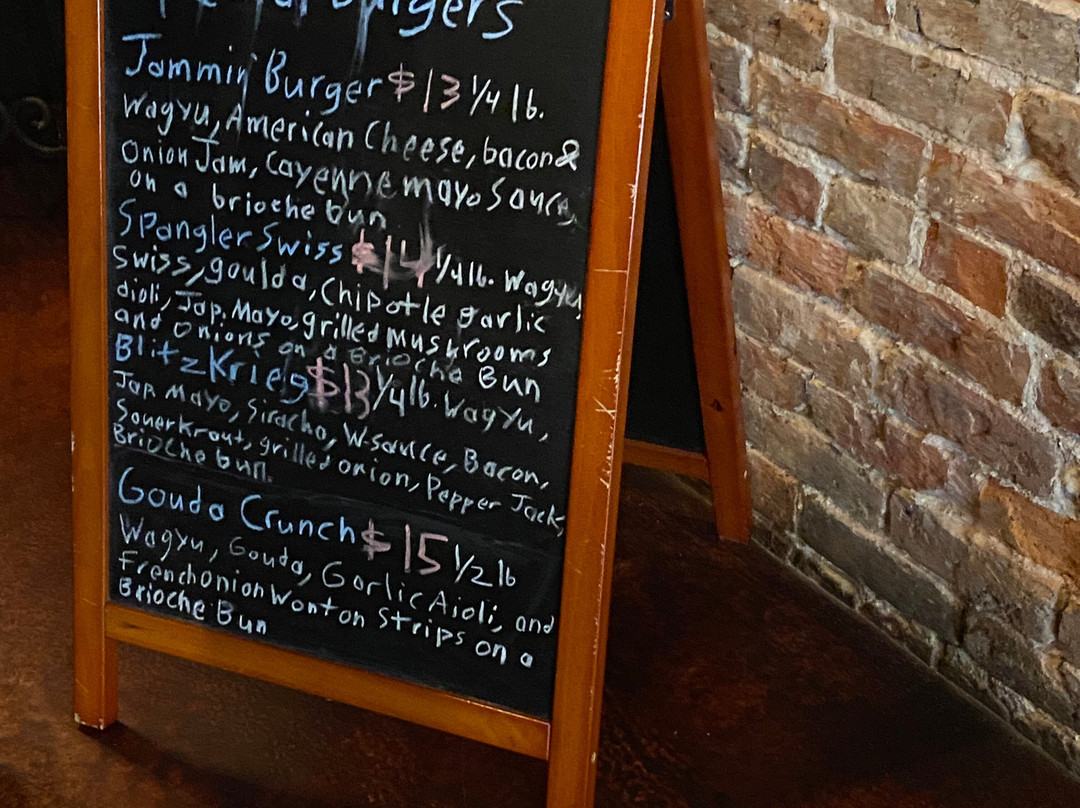 Burgers
Jammin' Burger $13 1/4 lb.
Wagyu, American Cheese, bacon &
Onion Jam, Cayenne mayo Sauce,
on a brioche bun
Spangler Swiss $14 1/4 lb. Wagyu,
Swiss, goulda, Chipotle garlic
aioli, Jap. Mayo, grilled Mushrooms
and onions on a Brioche Bun
BlitzKrieg $13 1/4 lb. Wagyu,
Jap Mayo, Siracha, W-sauce, Bacon,
Sauerkraut, grilled onion, Pepper Jack,
Brioche bun.
Gouda Crunch $15 1/2 lb
Wagyu, Gouda, Garlic Aioli, and
French Onion Wonton Strips on a
Brioche Bun